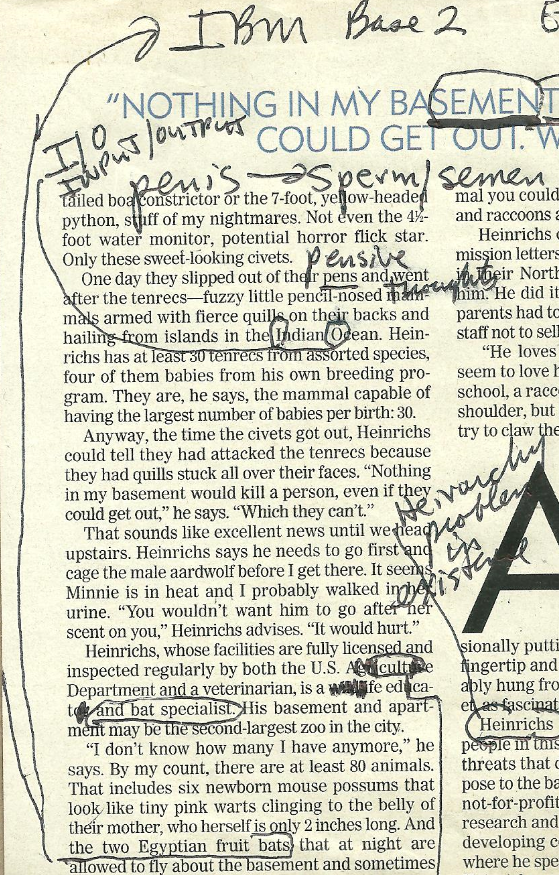 IBM Base 2
"NOTHING IN MY BASEMENT
COULD GET OUT. W
I/O
INPUT/OUTPUT
penis → Sperm/semen
tailed boa constrictor or the 7-foot, yellow-headed
python, stuff of my nightmares. Not even the 4½-
foot water monitor, potential horror flick star.
Only these sweet-looking civets.
pensive
thoughts
One day they slipped out of their pens and went
after the tenrecs—fuzzy little pencil-nosed mam-
mals armed with fierce quills on their backs and
hailing from islands in the Indian Ocean. Hein-
richs has at least 30 tenrecs from assorted species,
four of them babies from his own breeding pro-
gram. They are, he says, the mammal capable of
having the largest number of babies per birth: 30.
Anyway, the time the civets got out, Heinrichs
could tell they had attacked the tenrecs because
they had quills stuck all over their faces. "Nothing
in my basement would kill a person, even if they
could get out," he says. "Which they can't."
That sounds like excellent news until we head
upstairs. Heinrichs says he needs to go first and
cage the male aardwolf before I get there. It seems
Minnie is in heat and I probably walked in her
urine. "You wouldn't want him to go after her
scent on you," Heinrichs advises. "It would hurt."
Heinrichs, whose facilities are fully licensed and
inspected regularly by both the U.S. Agriculture
Department and a veterinarian, is a educa-
tor and bat specialist. His basement and apart-
ment may be the second-largest zoo in the city.
"I don't know how many I have anymore," he
says. By my count, there are at least 80 animals.
That includes six newborn mouse possums that
look like tiny pink warts clinging to the belly of
their mother, who herself is only 2 inches long. And
the two Egyptian fruit bats that at night are
allowed to fly about the basement and sometimes
mal you could
and raccoons a
Heinrichs c
mission letters
in their North
him. He did it
parents had to
staff not to sell
"He loves
seem to love h
school, a racc
shoulder, but
try to claw the
Heirarchy
problem
in
existence
A
sionally putti
fingertip and
ably hung fro
et, as fascinat
Heinrichs
people in this
threats that c
pose to the ba
not-for-profit
research and
developing c
where he spe